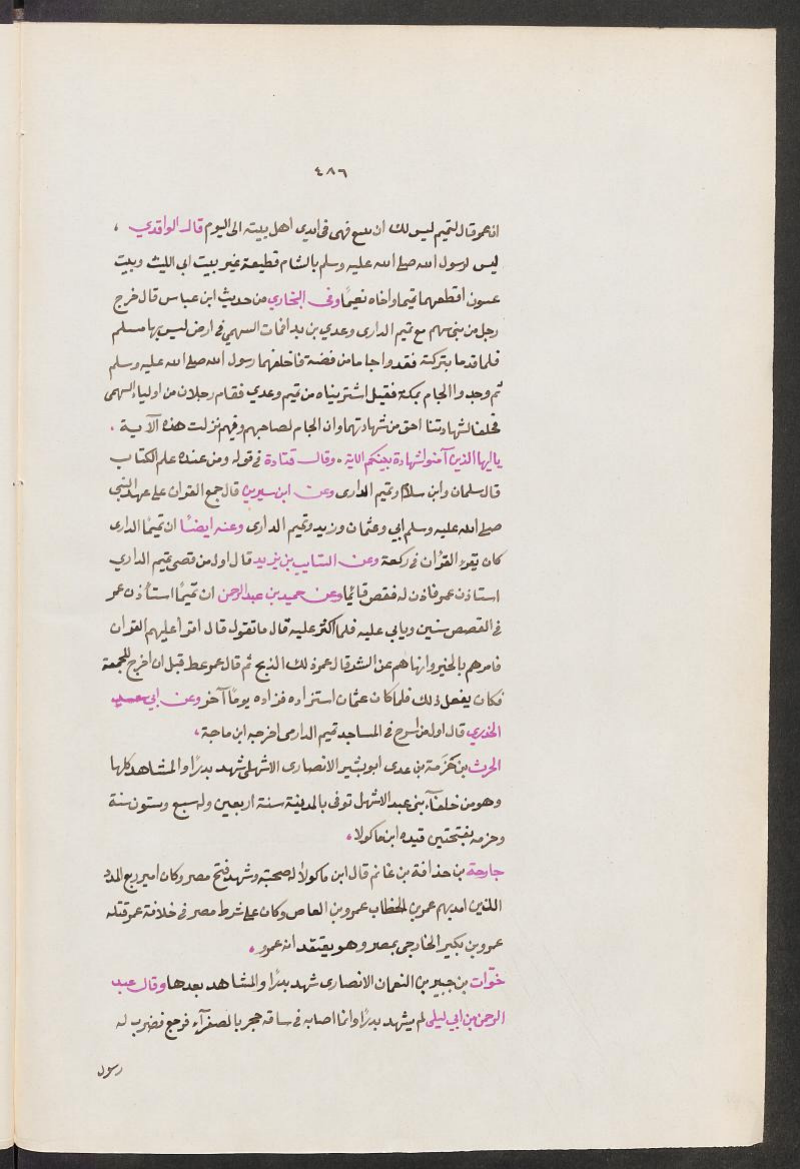 ٤٨٦
ان عمر قال لتميم ليس لك ان تبيع فهى فى ايدى اهل بيته الى اليوم قال الواقدي ،
ليس لرسول الله صلى الله عليه وسلم بالشام قطيعة غير بيت ابى الليث وبيت
عسون اقطعهما تميما واخاه نعيمًا وفى البخاري من حديث ابن عباس قال خرج
رجل من بنى سهم مع تميم الدارى وعدي بن بدا فمات السهمي فى ارض ليس بها مسلم
فلما قدما بتركته فقدوا جاما من فضة فاحلفهما رسول الله صلى الله عليه وسلم
ثم وجدوا الجام بمكة فقيل اشتريناه من تميم وعدي فقام رجلان من اولياء السهمى
فحلفا لشهادتنا احق من شهادتهما وان الجام لصاحبهم وفيهم نزلت هذه الآية .
يا ايها الذين آمنوا شهادة بينكم الاية . وقال قتادة فى قوله ومن عنده علم الكتاب
قال سلمان وابن سلام وتميم الدارى وعن ابن سيرين قال جمع القران على عهد النبى
صلى الله عليه وسلم ابي وعثمان وزيد وتميم الدارى وعنه ايضًا ان تميمًا الدارى
كان يقرء القرْان فى ركعة وعن السّايب بن يزيد قال اول من قصى تميم الداري
استاذن عمر فاذن له فقص قائمًا وعن حميد بن عبد الرحمن ان تميمًا استأذن عمر
فى القصص سنين ويابى عليه فلما اكثر عليه قال ما تقول قال اقرا عليهم القران
فامرهم بالخير وانهاهم عن الشر قال عمر ذلك الذبح ثم قال عمر عظ قبل ان اخرج للجمعة
فكان يفعل ذلك فلما كان عثمان استزاده فزاده يومًا آخر وعن ابى سعيد
الخدري قال اول من اسرج فى المساجد تميم الدارمى اخرجه ابن ماجة ،
الحرث بن خَزَمة بن عدى ابو بشير الانصارى الاشهلى شهد بدرًا والمشاهد كلها
وهو من خلفآء بنى عبد الاشهل توفى بالمدينة سنة اربعين وله سبع وستون سنة
وحزمه بفتحتين قيده ابن ماكولا .
جارحة بن حذافة بن غانم قال ابن ماكولا له صحبة وشهد فتح مصر وكان امير ربع المدد
اللذين امد بهم عمر بن الخطاب عمرو بن العاص وكان على شرط مصر فى خلافة عمر قتله
عمرو بن بكير الخارجى بمصر وهو يعتقد انه عمرو .
خوّات بن جبير بن النعمان الانصارى شهد بدرًا والمشاهد بعدها وقال عبد
الرحمن بن ابى ليلى لم يشهد بدرًا وانما اصابه فى ساقه حجر بالصفرآء فرجع فضرب له
رسول